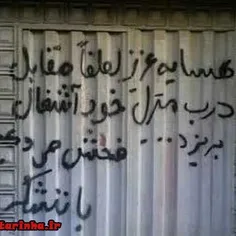 همسایه عزیز لطفاً مقابل
درب منزل خود آشغال
بریزد... فحش می دهم
با تشکر
tarinha.ir